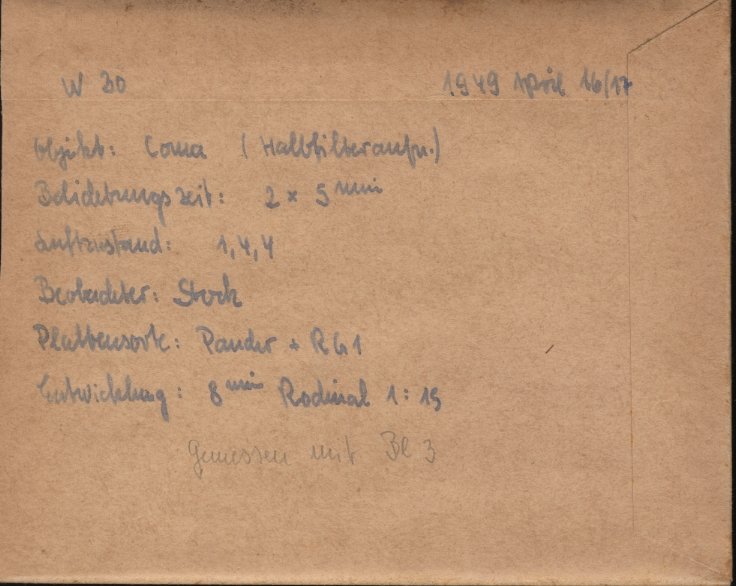 W 30 1949 April 16/17
Objekt: Coma (Halbfilteraufn.)
Belichtungszeit: 2 x 5 min
Luftzustand: 1,4,4
Beobachter: Stock
Plattensorte: Pander + RG1
Entwicklung: 8 min Rodinal 1:15
Gemessen mit Bl 3